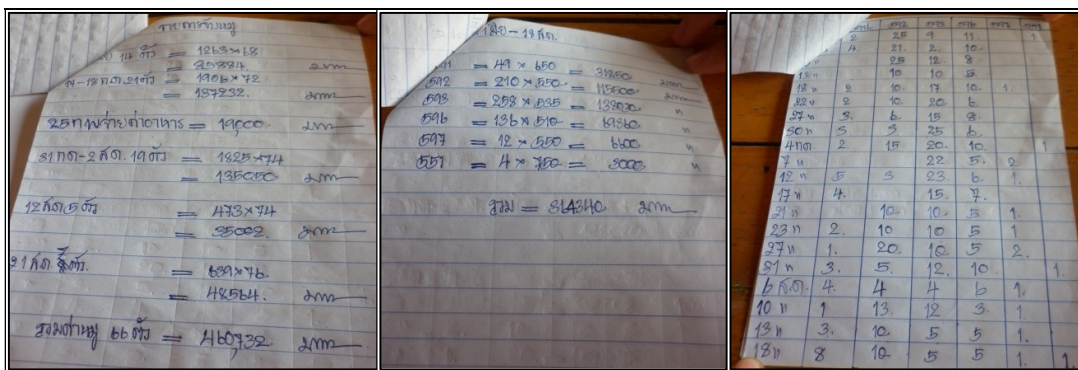 รายการขายหมู
14 ตัว = 1263×68
= 85884. บาท
14-18 กค. 21 ตัว = 1906×72
= 137232. บาท
25 กพ จ่ายค่าอาหาร = 19,000. บาท
31 กค - 2 สค. 19 ตัว = 1825×74
= 135050 บาท
12 สค 5 ตัว = 473×74
= 35002. บาท
21 สค. ตัว. = 639×76.
= 48564. บาท
รวมค่าหมู 66 ตัว = 460,732. บาท
- 18 สค.
= 49 × 650 = 31850.
592 = 210 × 550 = 115500 บาท
593 = 258 × 535 = 138030 "
596 = 136 × 510 = 69360 "
597 = 12 × 550 = 6600 "
551 = 4 × 750 = 3000 "
รวม = 364340. บาท
2 25 9 11 1
4. 21. 2. 10.
25 12. 8
10 10 5
18 " 2 10. 17 10. 1.
22 " 2 10. 20. 6
27 " 3. 6. 15 8.
30 " 3 5. 25 6.
4 กค. 2 15 20. 10. 1
7 " 22 5. 2
12 " 5 3 23. 6 1.
17 " 4. 15. 7.
21 " 10. 10. 5 1.
23 " 2. 10 10 5 1
27 " 1. 20. 10 5 2.
31 " 3. 5. 12. 10 1.
6 ส.ค. 4. 4 4 6 1.
10 " 1 13. 12 3. 1.
13 " 3. 10. 5 5 1.
18 " 8 10. 5 5 1. 1.